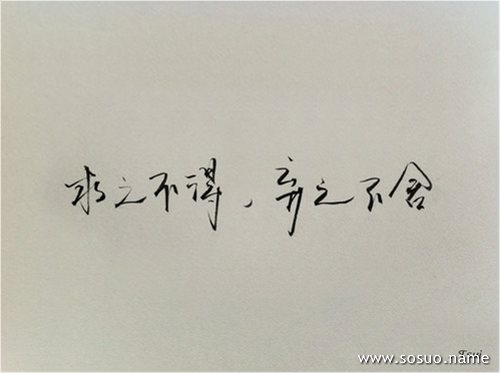 求之不得，弃之不舍
www.sosuo.name